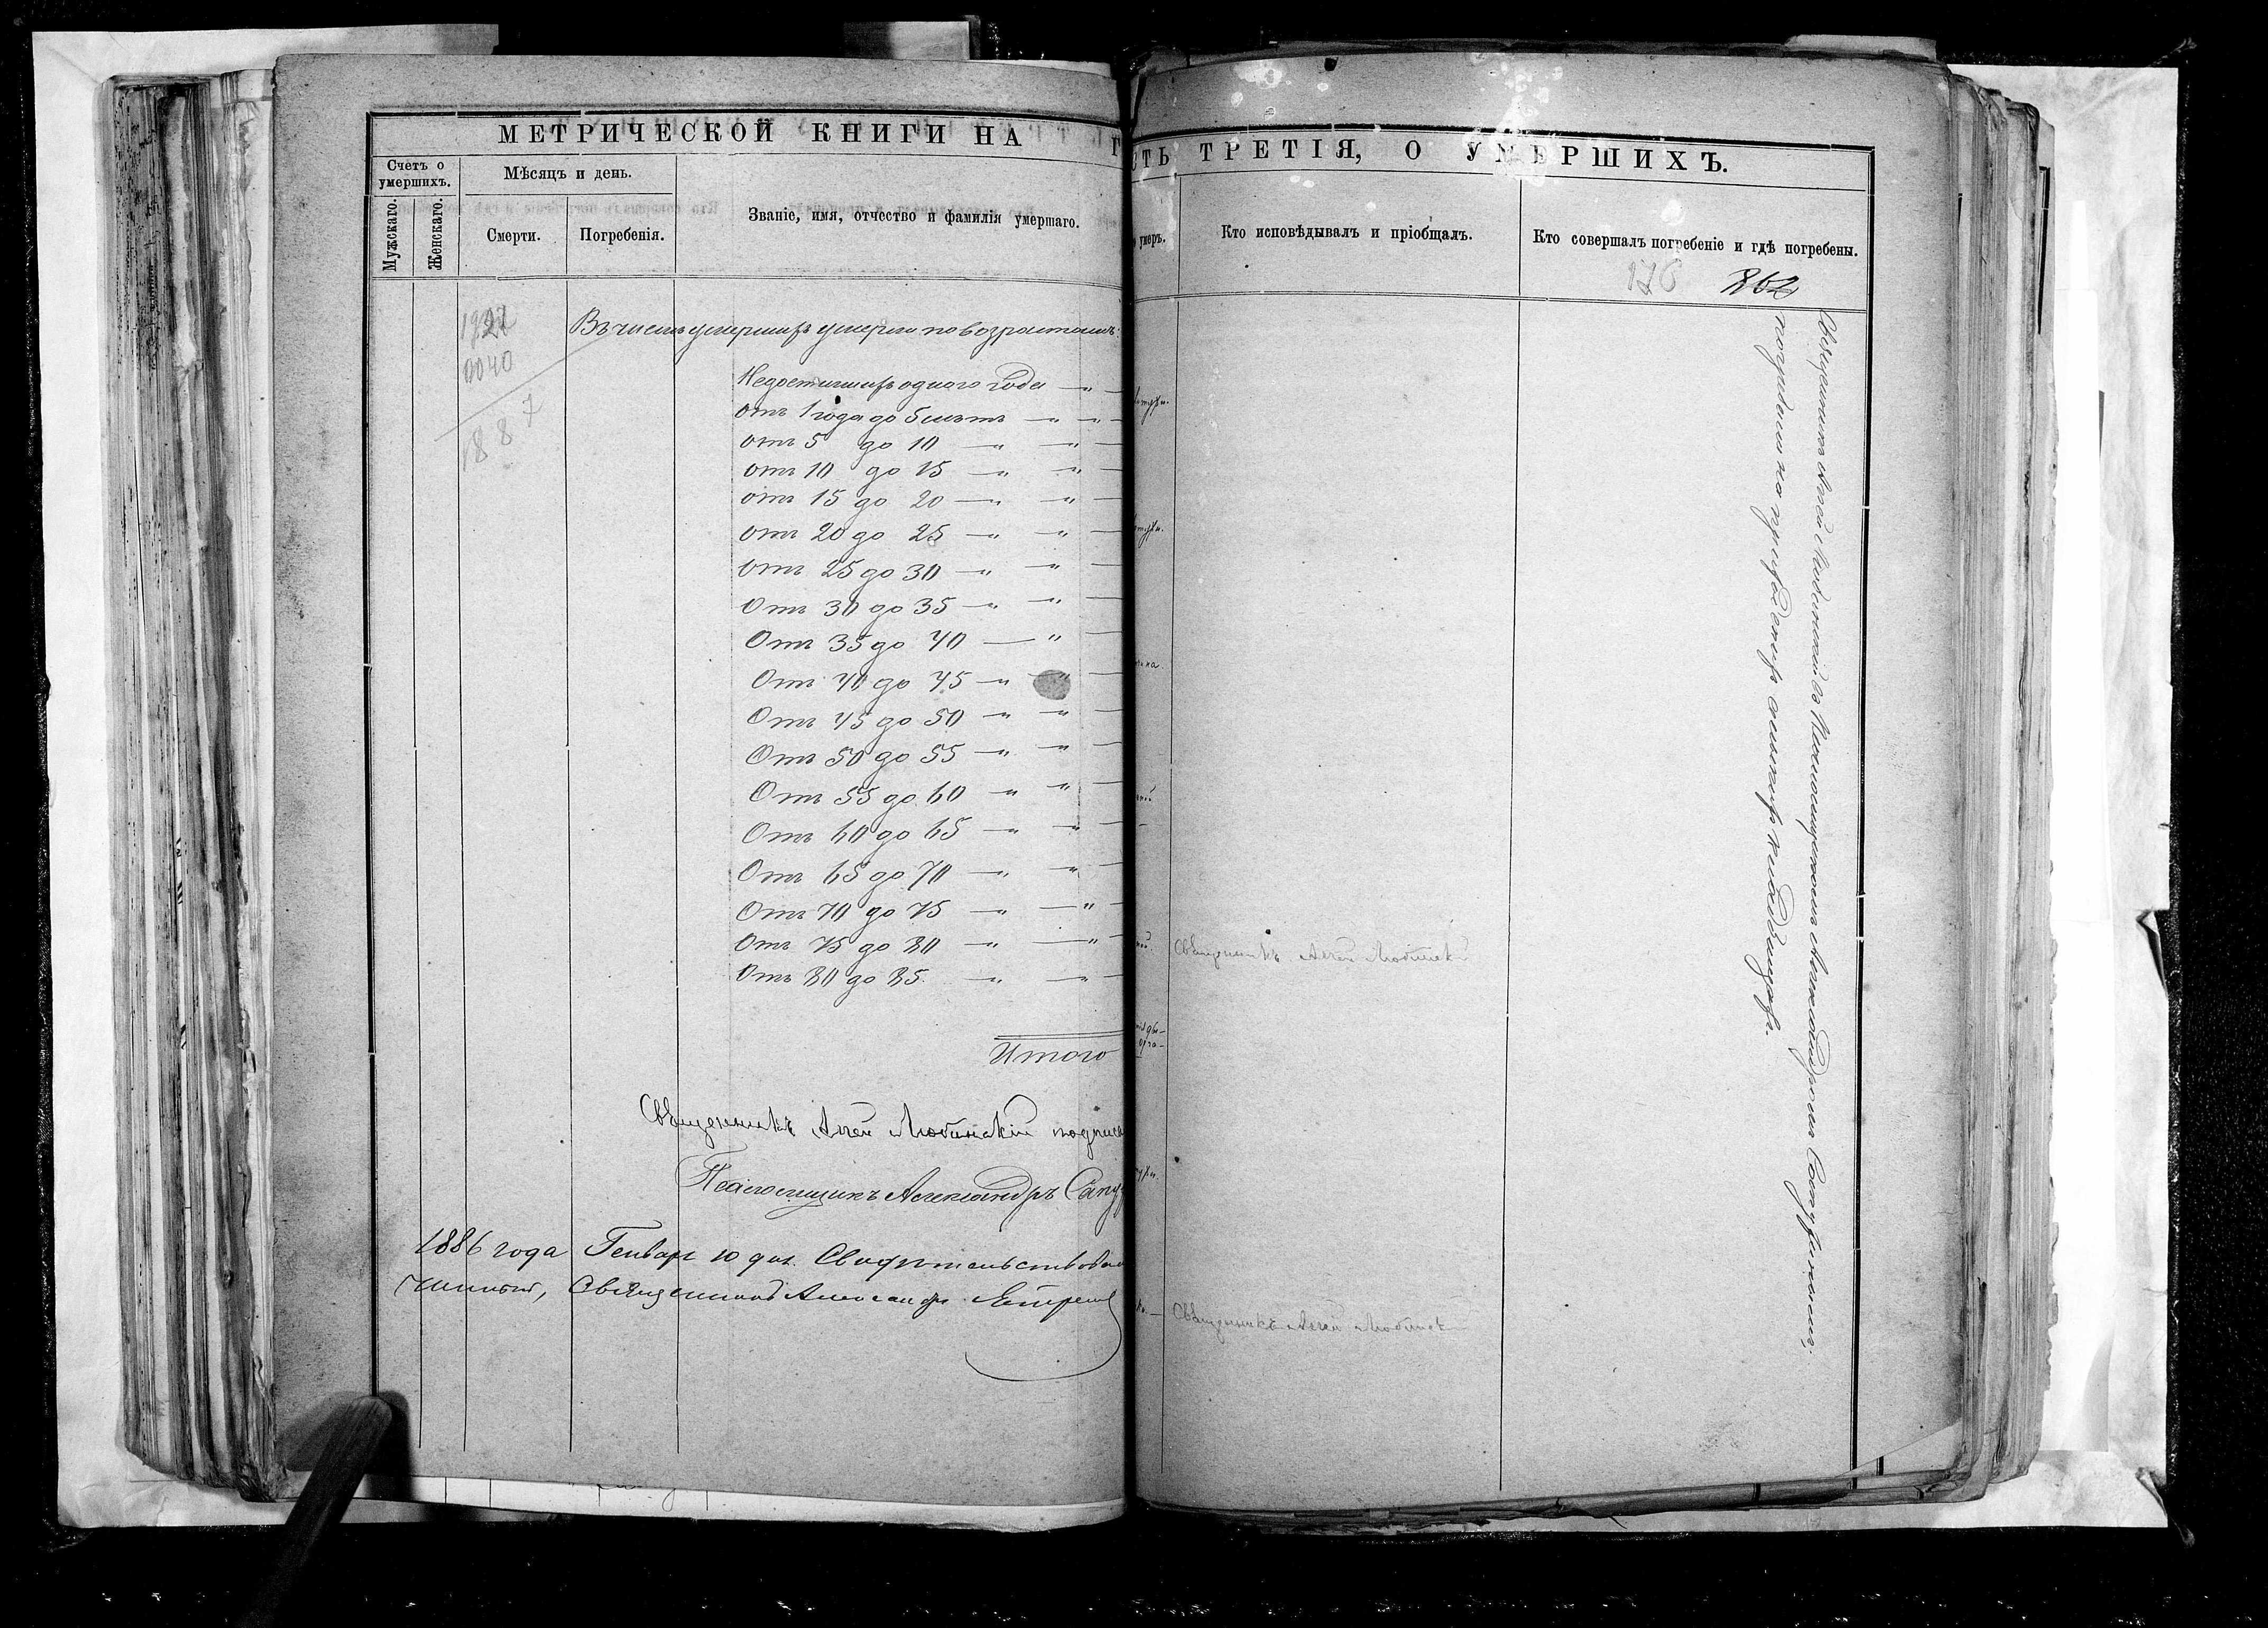 МЕТРИЧЕСКОЙ КНИГИ НА Г
Счетъ о умершихъ.
Мѣсяцъ и день.
Мужскаго.
Женскаго.
Смерти.
Погребенія.
Званіе, имя, отчество и фамилія умершаго.
Въ числѣ умершихъ умерли по возрастамъ:
0040
1887
Недостигшихъ одного года — „ —
отъ 1 года до 5 лѣтъ — „ —
отъ 5 до 10 — „ — „
отъ 10 до 15 — „ — „
отъ 15 до 20 — „ — „
отъ 20 до 25 — „ — „
отъ 25 до 30 — „ — „
Отъ 30 до 35 — „ — „
Отъ 35 до 40 — „
Отъ 40 до 45 — „ — „
Отъ 45 до 50 — „ — „
Отъ 50 до 55 — „ — „
Отъ 55 до 60 — „ — „
Отъ 60 до 65 — „ — „
Отъ 65 до 70 — „ — „
Отъ 70 до 75 — „ — „
Отъ 75 до 80 — „ — „
Отъ 80 до 85 — „ — „
Итого
Священникъ Агей Любинскій подписа
Псаломщикъ Александръ Сап
1886 года Генваря 10 дня. Свидѣтельствовалъ
Священникъ Александръ
СТЬ ТРЕТІЯ, О УМЕРШИХЪ.
умеръ.
Кто исповѣдывалъ и пріобщалъ.
Кто совершалъ погребеніе и гдѣ погребены.
176 862
Священникъ Агей Любинскій съ Псаломщикомъ Александромъ
погребены на приходскихъ кладбищахъ.
Священникъ Агей Любинскій
Священникъ Агей Любинскі